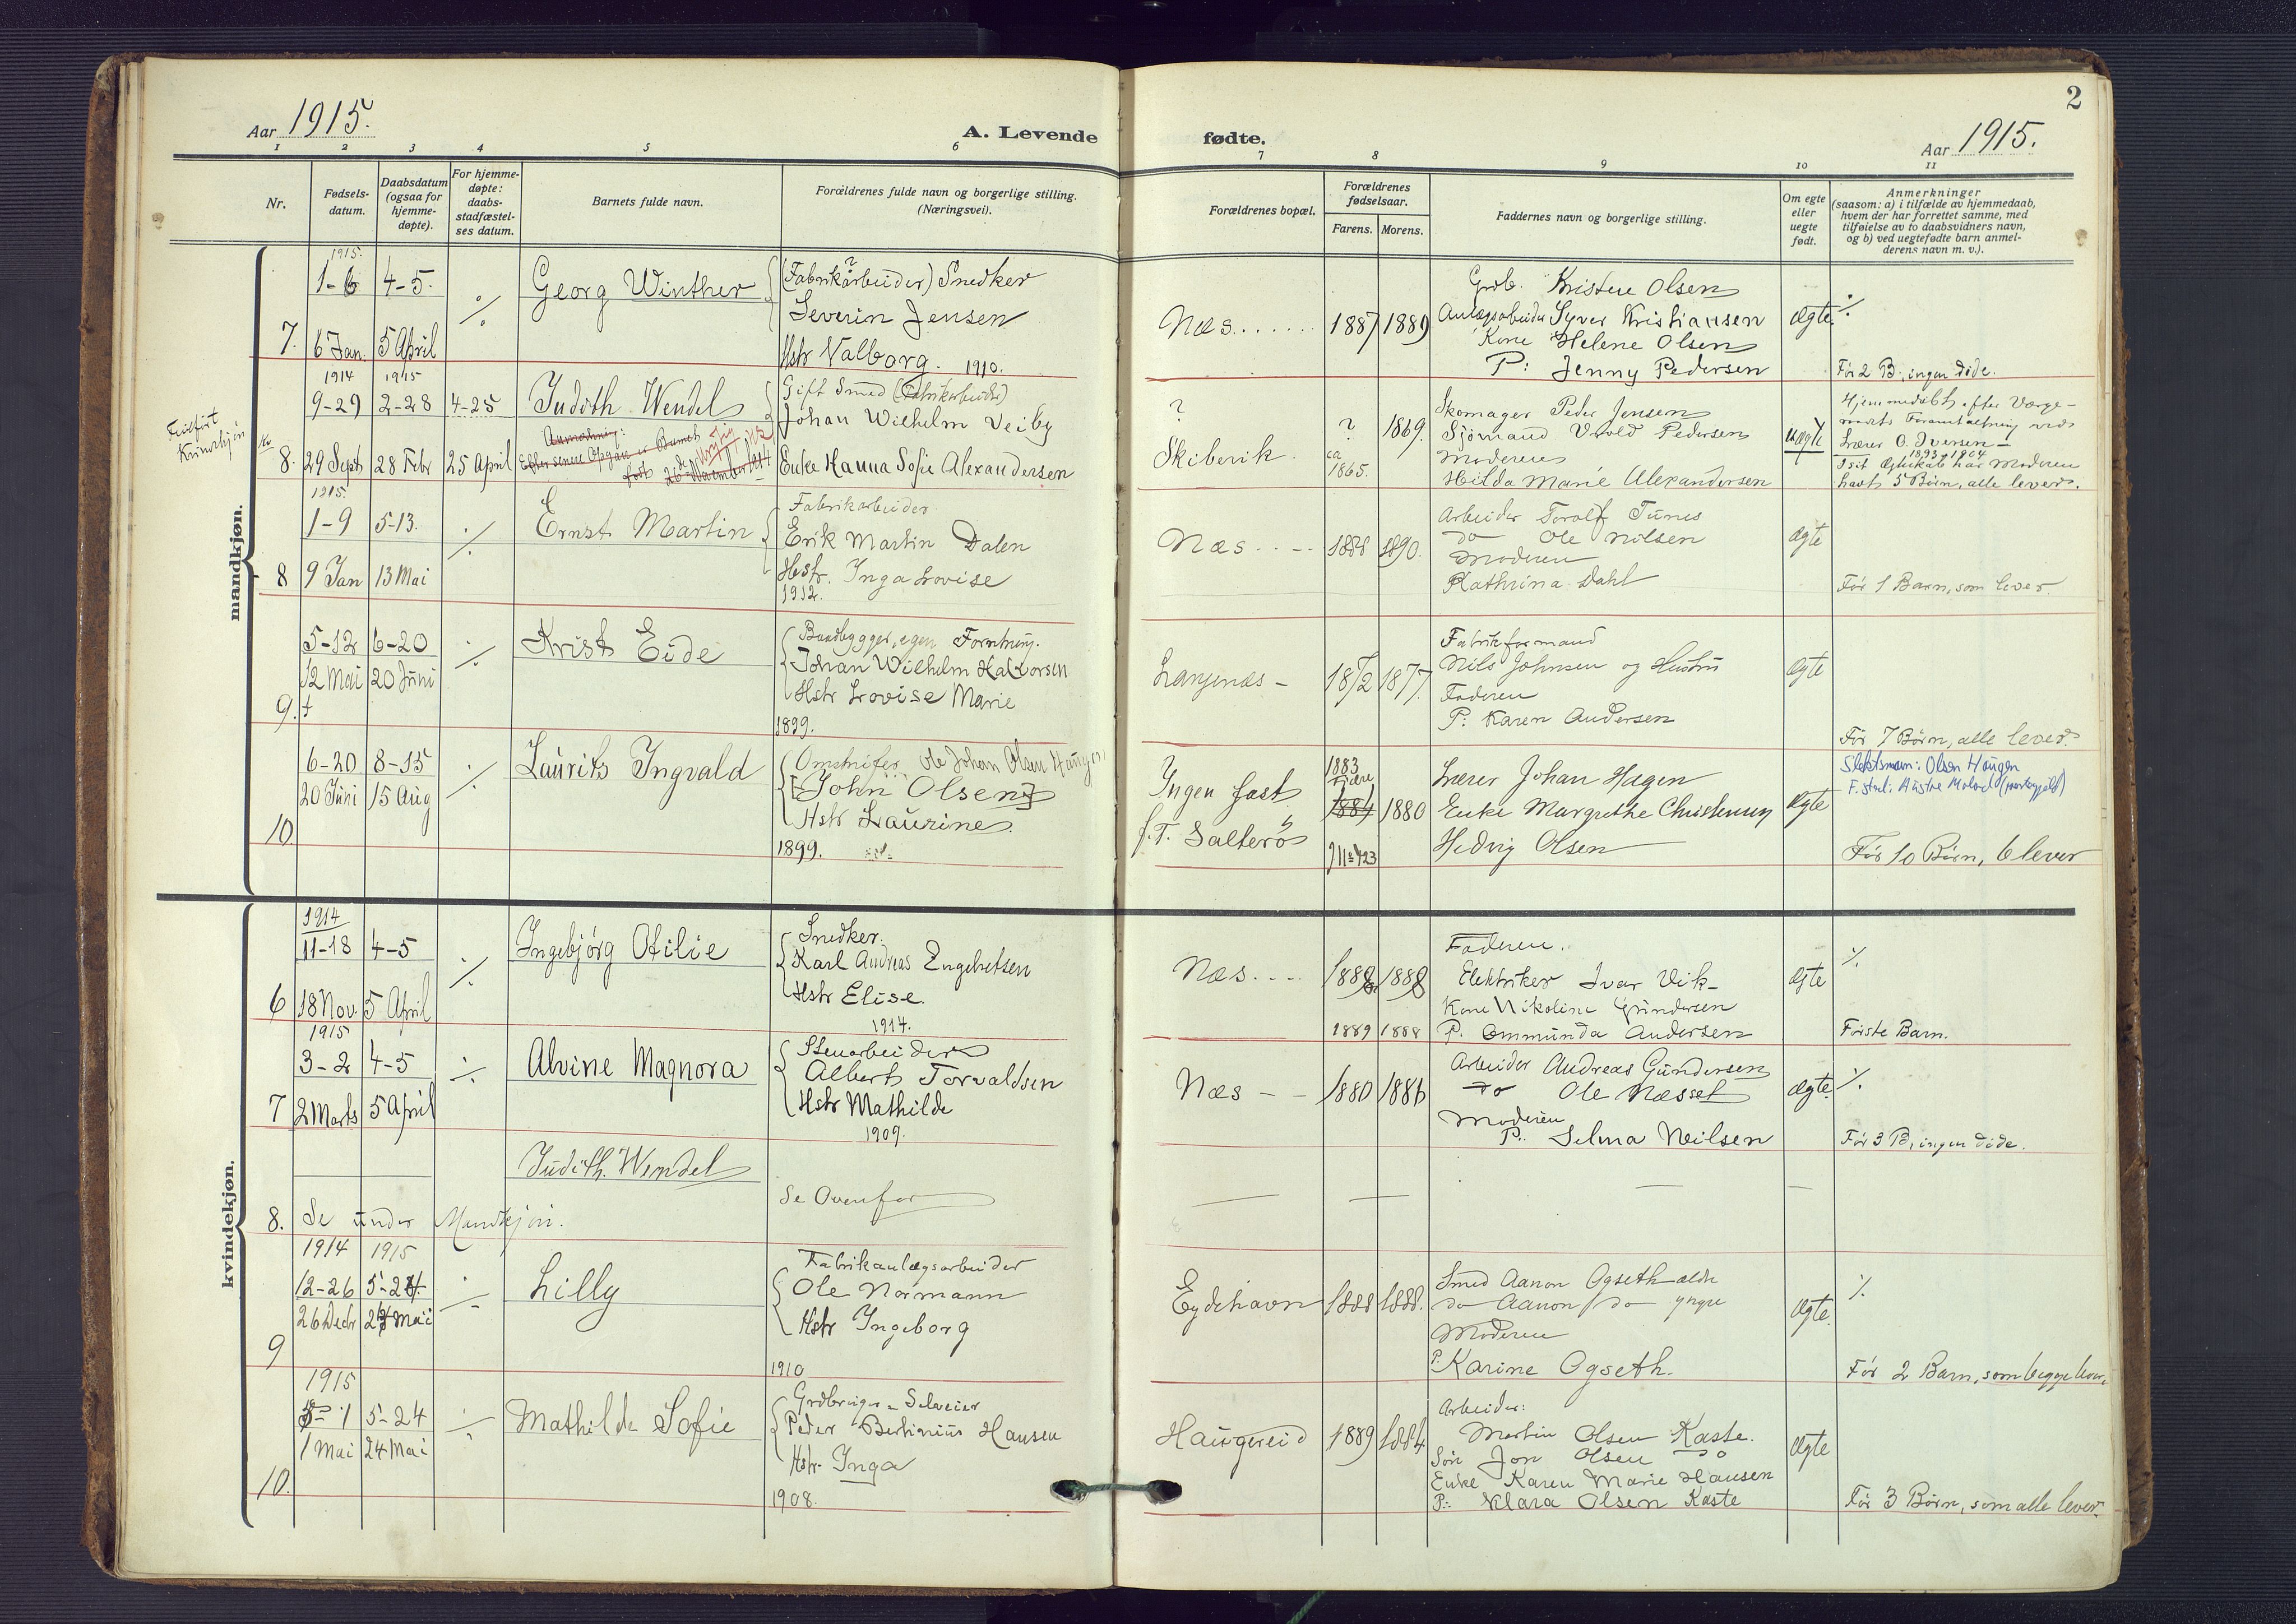 2
Aar 1915.
A. Levende
fødte.
Aar 1915.
1 2 3 4 5 6 7 8 9 10 11
Nr.
Fødsels-
datum.
Daabsdatum
(ogsaa for
hjemme-
døpte).
For hjemme-
døpte:
daabs-
stadfæstel-
ses datum.
Barnets fulde navn.
Forældrenes fulde navn og borgerlige stilling.
(Næringsvei).
Forældrenes bopæl.
Forældrenes
fødselsaar.
Farens. Morens.
Faddernes navn og borgerlige stilling.
Om egte
eller
uegte
født.
Anmerkninger
(saasom: a) i tilfælde av hjemmedaab,
hvem der har forrettet samme, med
tilføielse av to daabsvidners navn,
og b) ved uegtefødte barn anmel-
derens navn m. v.).
mandkjøn.
7.
1915.
1-6 4-5.
6 Jan. 5 April
Georg Winther
(Fabrikarbeider) Snedker
Severin Jensen
Hstr Valborg. 1910.
Næs
1887 1889
Grdb. Kristen Olsen
Anlægsarbeider Syver Kristiansen
Kone Helene Olsen
P: Jenny Pedersen
Ægte
Før 2 B., ingen døde.
Kvindekjøn
8.
1914 1915
9-29 2-28 4-25
29 Sept 28 Febr 25 April
Judith Wendel
Anmærkning:
Efter senere Opgave er Barnet
født 26de November 1914
Gift Smed (Fabrikarbeider)
Johan Wilhelm Veiby
Enke Hanna Sofie Alexandersen
?
Skibervik
? 1869.
ca
1865.
Skomager Peder Jensen
Sjömand Pedersen
Moderen
Hilda Marie Alexandersen
uægte
Hjemmedöbt efter Værge-
Lærer O. Iversen
1893-1904
I sit Ægteskab har Moderen
havt 5 Børn, alle lever.
8
1915.
1-9 5-13.
9 Jan 13 Mai
Ernst Martin
Fabrikarbeider
Erik Martin Dalen
Hstr. Inga Lovise
1912.
Næs
1888 1890.
Arbeider Torolf Tünes
do Ole Nilsen
Moderen
Kathrina Dahl
Ægte
Før 1 Barn, som lever.
9.
5-12 6-20
12 Mai 20 Juni
Krist Eide
Baadbygger, egen Forretning.
Johan Wilhelm Halvorsen
Hstr Lovise Marie
1899.
Longenæs
1872 1877.
Fabrikformand
Nils Johnsen og Hustru
Faderen
P: Karen Andersen
Ægte
Før 7 Børn, alle lever.
10.
6-20 8-15
20 Juni 15 Aug
Laurits Ingvald
Omstreifer Ole Johan Olsen Haugen
[John Olsen]
Hstr Laurine
1899.
Ingen fast
f. T. Salterö
1883
1881 1880
Lærer Johan Hagen
Enke Margrethe Christensen
Hedvig Olsen
Ægte
Slektsnavn: Olsen Haugen
F. sted: Austre Moland (prestegjeld)
Før 10 Børn, 6 lever
kvindekjøn.
6
1914
11-18 4-5
18 Nov. 5 April
Ingebjörg Otilie
Snedker.
Karl Andreas Engebretsen
Hstr Elise.
1914.
Næs
1888 1888
1889 1888
Faderen.
Elektriker Ivar Vik
Kone Nikoline Gundersen
P. Ommunda Andersen
Ægte
Første Barn.
7
1915
3-2 4-5
2 Marts 5 April
Alvine Magnora
Stenarbeider
Albert Torvaldsen
Hstr Mathilde
1909.
Næs
1880 1886
Arbeider Andreas Gundersen
do Ole Næsset
Moderen
P.: Selma Neilsen
Ægte.
Før 3 B, ingen døde.
8.
Judith Wendel
Se under Mandkjön.
Se Ovenfor
9
1914 1915
12-26 5-24
26 Decbr 24 Mai
Lilly
Fabrikanlægsarbeider
Ole Normann
Hstr Ingeborg
1910
Eydehavn
1888 1888.
Smed Aanon Ogseth ældre
do Aanon do yngre
Moderen
P. Karine Ogseth.
Ægte.
Før 2 Barn, som begge lever.
10.
1915
5-1 5-24
1 Mai 24 Mai
Mathilde Sofie
Grdbruger - Selveier
Peder Bertinius Hansen
Hstr. Inga
1908.
Haugereid
1889 1884
Arbeider:
Martin Olsen Kaste.
Søn Jon Olsen do
Enke Karen Marie Hansen
P.: Klara Olsen Kaste
Ægte
Før 3 Børn, som alle lever.